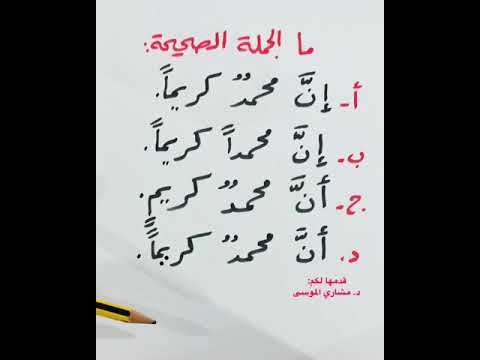 ما الجملة الصحيحة:
أ- إنَّ محمدٌ كريماً.
ب- إنَّ محمداً كريماً.
ج- أنَّ محمدٌ كريمٍ.
د. أنَّ محمدٌ كريماً.
قدمها لكم:
د. مشاري الموسى